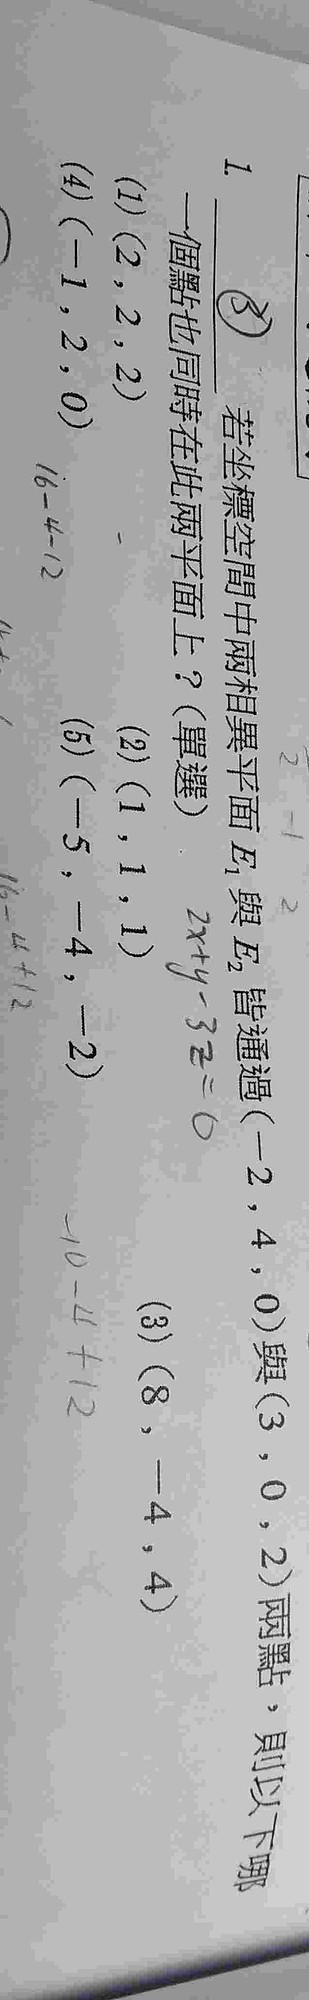 1. (3) 若坐標空間中兩相異平面 E₁ 與 E₂ 皆通過(－2，4，0)與(3，0，2)兩點，則以下哪
一個點也同時在此兩平面上？(單選)
2x+y-3z=0
(1) (2，2，2) (2) (1，1，1) (3) (8，－4，4)
(4) (－1，2，0) (5) (－5，－4，－2)
16-4-12
-10-4+12
16-4+12
2 -1 2